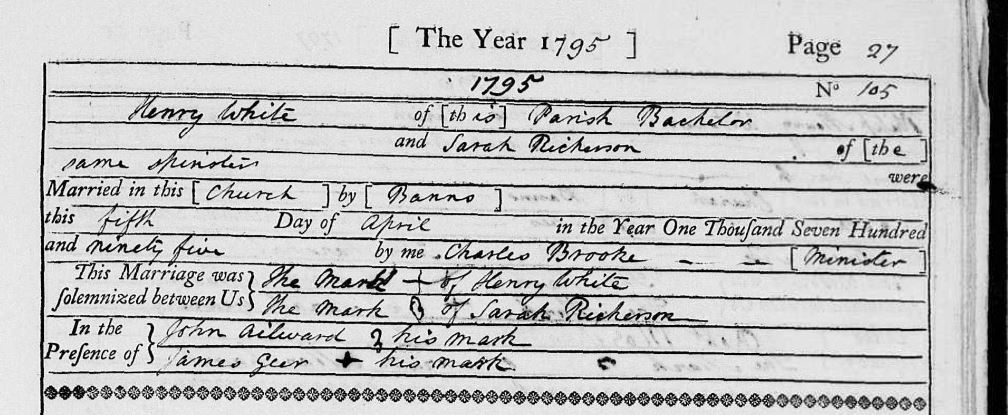 [ The Year 1795 ] Page 27
1795 No 105
Henry White of [this] Parish Bachelor
and Sarah Rickerson of [the ]
same spinster were
Married in this [ Church ] by [ Banns ]
this fifth Day of April in the Year One Thouſand Seven Hundred
and ninety five by me Charles Brooke [ Minister ]
This Marriage was } the Mark + of Henry White
ſolemnized between Us } The Mark of Sarah Rickerson
In the } John Ailward his mark
Preſence of } James Geer + his mark